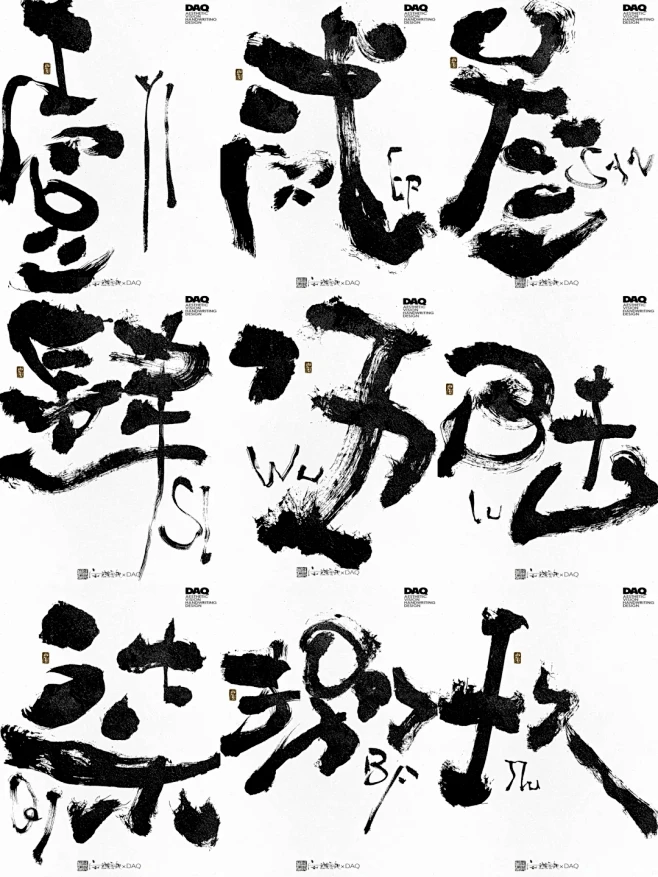 DAQ
AESTHETIC
VISION
HANDWRITING
DESIGN
壹
YI
×DAQ
DAQ
AESTHETIC
VISION
HANDWRITING
DESIGN
贰
Er
×DAQ
DAQ
AESTHETIC
VISION
HANDWRITING
DESIGN
叁
SAN
×DAQ
DAQ
AESTHETIC
VISION
HANDWRITING
DESIGN
肆
SI
×DAQ
DAQ
AESTHETIC
VISION
HANDWRITING
DESIGN
伍
Wu
×DAQ
DAQ
AESTHETIC
VISION
HANDWRITING
DESIGN
陆
lu
×DAQ
DAQ
AESTHETIC
VISION
HANDWRITING
DESIGN
柒
Qi
×DAQ
DAQ
AESTHETIC
VISION
HANDWRITING
DESIGN
捌
BA
×DAQ
DAQ
AESTHETIC
VISION
HANDWRITING
DESIGN
玖
×DAQ